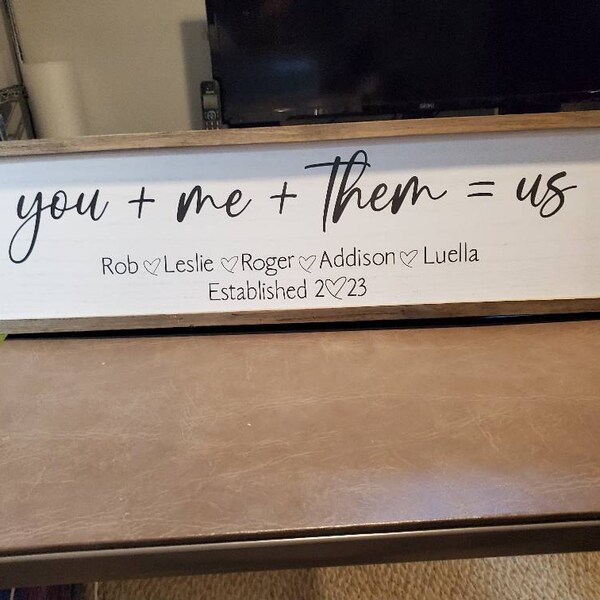 you + me + Them = us
Rob ♡ Leslie ♡ Roger ♡ Addison ♡ Luella
Established 2♡23